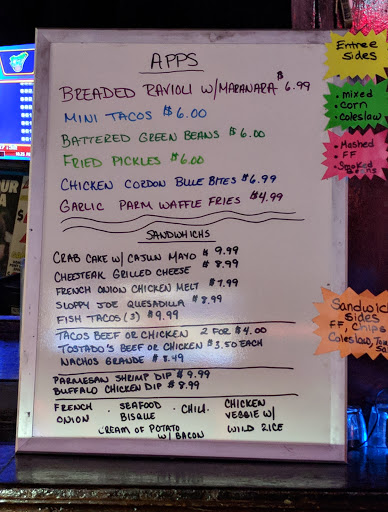 APPS
BREADED RAVIOLI W/MARANARA $6.99
MINI TACOS $6.00
BATTERED GREEN BEANS $6.00
FRIED PICKLES $6.00
CHICKEN CORDON BLUE BITES $6.99
GARLIC PARM WAFFLE FRIES $4.99
SANDWHICHS
CRAB CAKE W/ CAJUN MAYO $9.99
CHEESTEAK GRILLED CHEESE $8.99
FRENCH ONION CHICKEN MELT $7.99
SLOPPY JOE QUESADILLA $8.99
FISH TACOS (3) $9.99
TACOS BEEF OR CHICKEN 2 FOR $4.00
TOSTADO'S BEEF OR CHICKEN $3.50 EACH
NACHOS GRANDE $8.49
PARMESAN SHRIMP DIP $9.99
BUFFALO CHICKEN DIP $9.99
FRENCH ONION · SEAFOOD BISQUE · CHILI · CHICKEN VEGGIE W/ WILD RICE
CREAM OF POTATO W/ BACON
Entree
sides
• mixed
• corn
• coleslaw
• Mashed
• FF
• Smoked
Sandwich
sides
FF, Chips
Coleslaw,